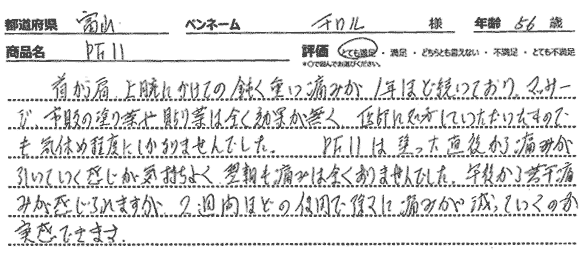 都道府県 富山 ペンネーム チロル 様 年齢 56 歳
商品名 PFII 評価 とても満足 ・ 満足 ・ どちらとも言えない ・ 不満足 ・ とても不満足
*○で囲んでお選びください。
首から肩、上腕にかけての鈍く重い痛みが1年ほど続いており、マッサー
ジ、市販の塗り薬や貼り薬は全く効果が無く、医師に処方していただいたもので
も気休め程度にしかなりませんでした。 PFIIは塗った直後から痛みが
引いていく感じが気持ちよく翌朝も痛みは全くありませんでした。午後から若干痛
みが感じられますが、2週間ほどの使用で徐々に痛みが減っていくのが
実感できます。